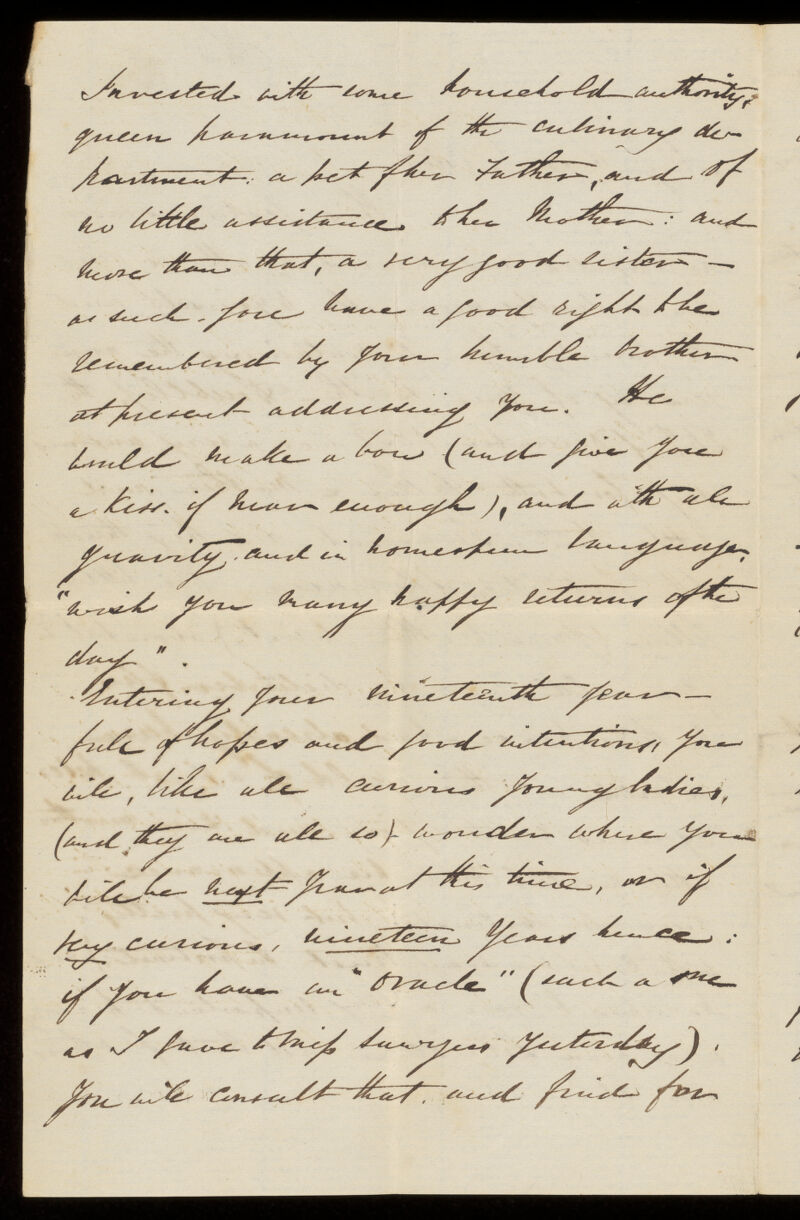 Invested with some household authority;
queen paramount of the culinary de-
partment: a pet of her Father, and of
no little assistance to her Mother: and
more than that, a very good sister —
as such - you have a good right to be
remembered by your humble brother
at present addressing you. He
would make a bow (and give you
a kiss. if near enough), and with all
gravity, and in homespun language,
"wish you many happy returns of the
day".
Entering your nineteenth year —
full of hopes and good intentions, you
will, like all curious young ladies,
(and they are all so) - wonder where you
will be next year at this time, or if
very curious, nineteen years hence:
if you have an "oracle" (such a one
as I gave to Miss Sawyers yesterday).
You will consult that. and find for